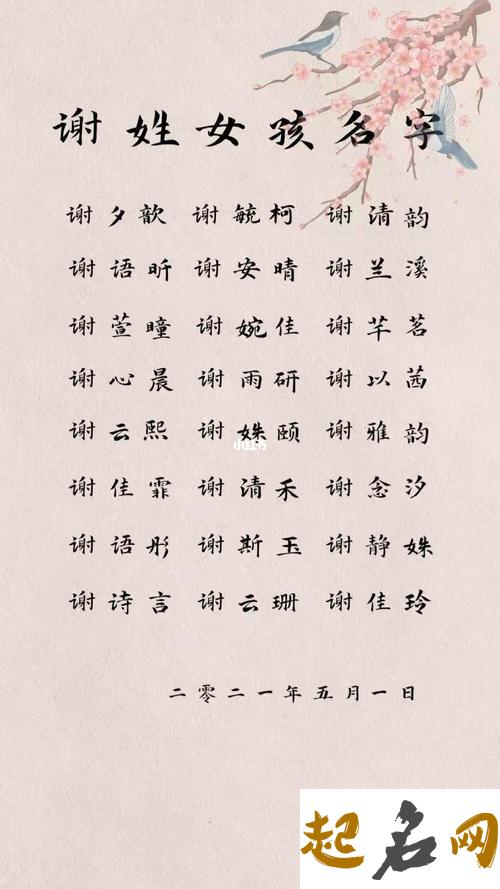 谢姓女孩名字
谢夕歆 谢毓柯 谢清韵
谢语昕 谢安晴 谢兰溪
谢萱瞳 谢婉佳 谢芊茗
谢心晨 谢雨研 谢以茜
谢云熙 谢姝颐 谢雅韵
小红书
谢佳霏 谢清禾 谢念汐
谢语彤 谢斯玉 谢静姝
谢诗言 谢云珊 谢佳玲
二零二一年五月一日
起名网